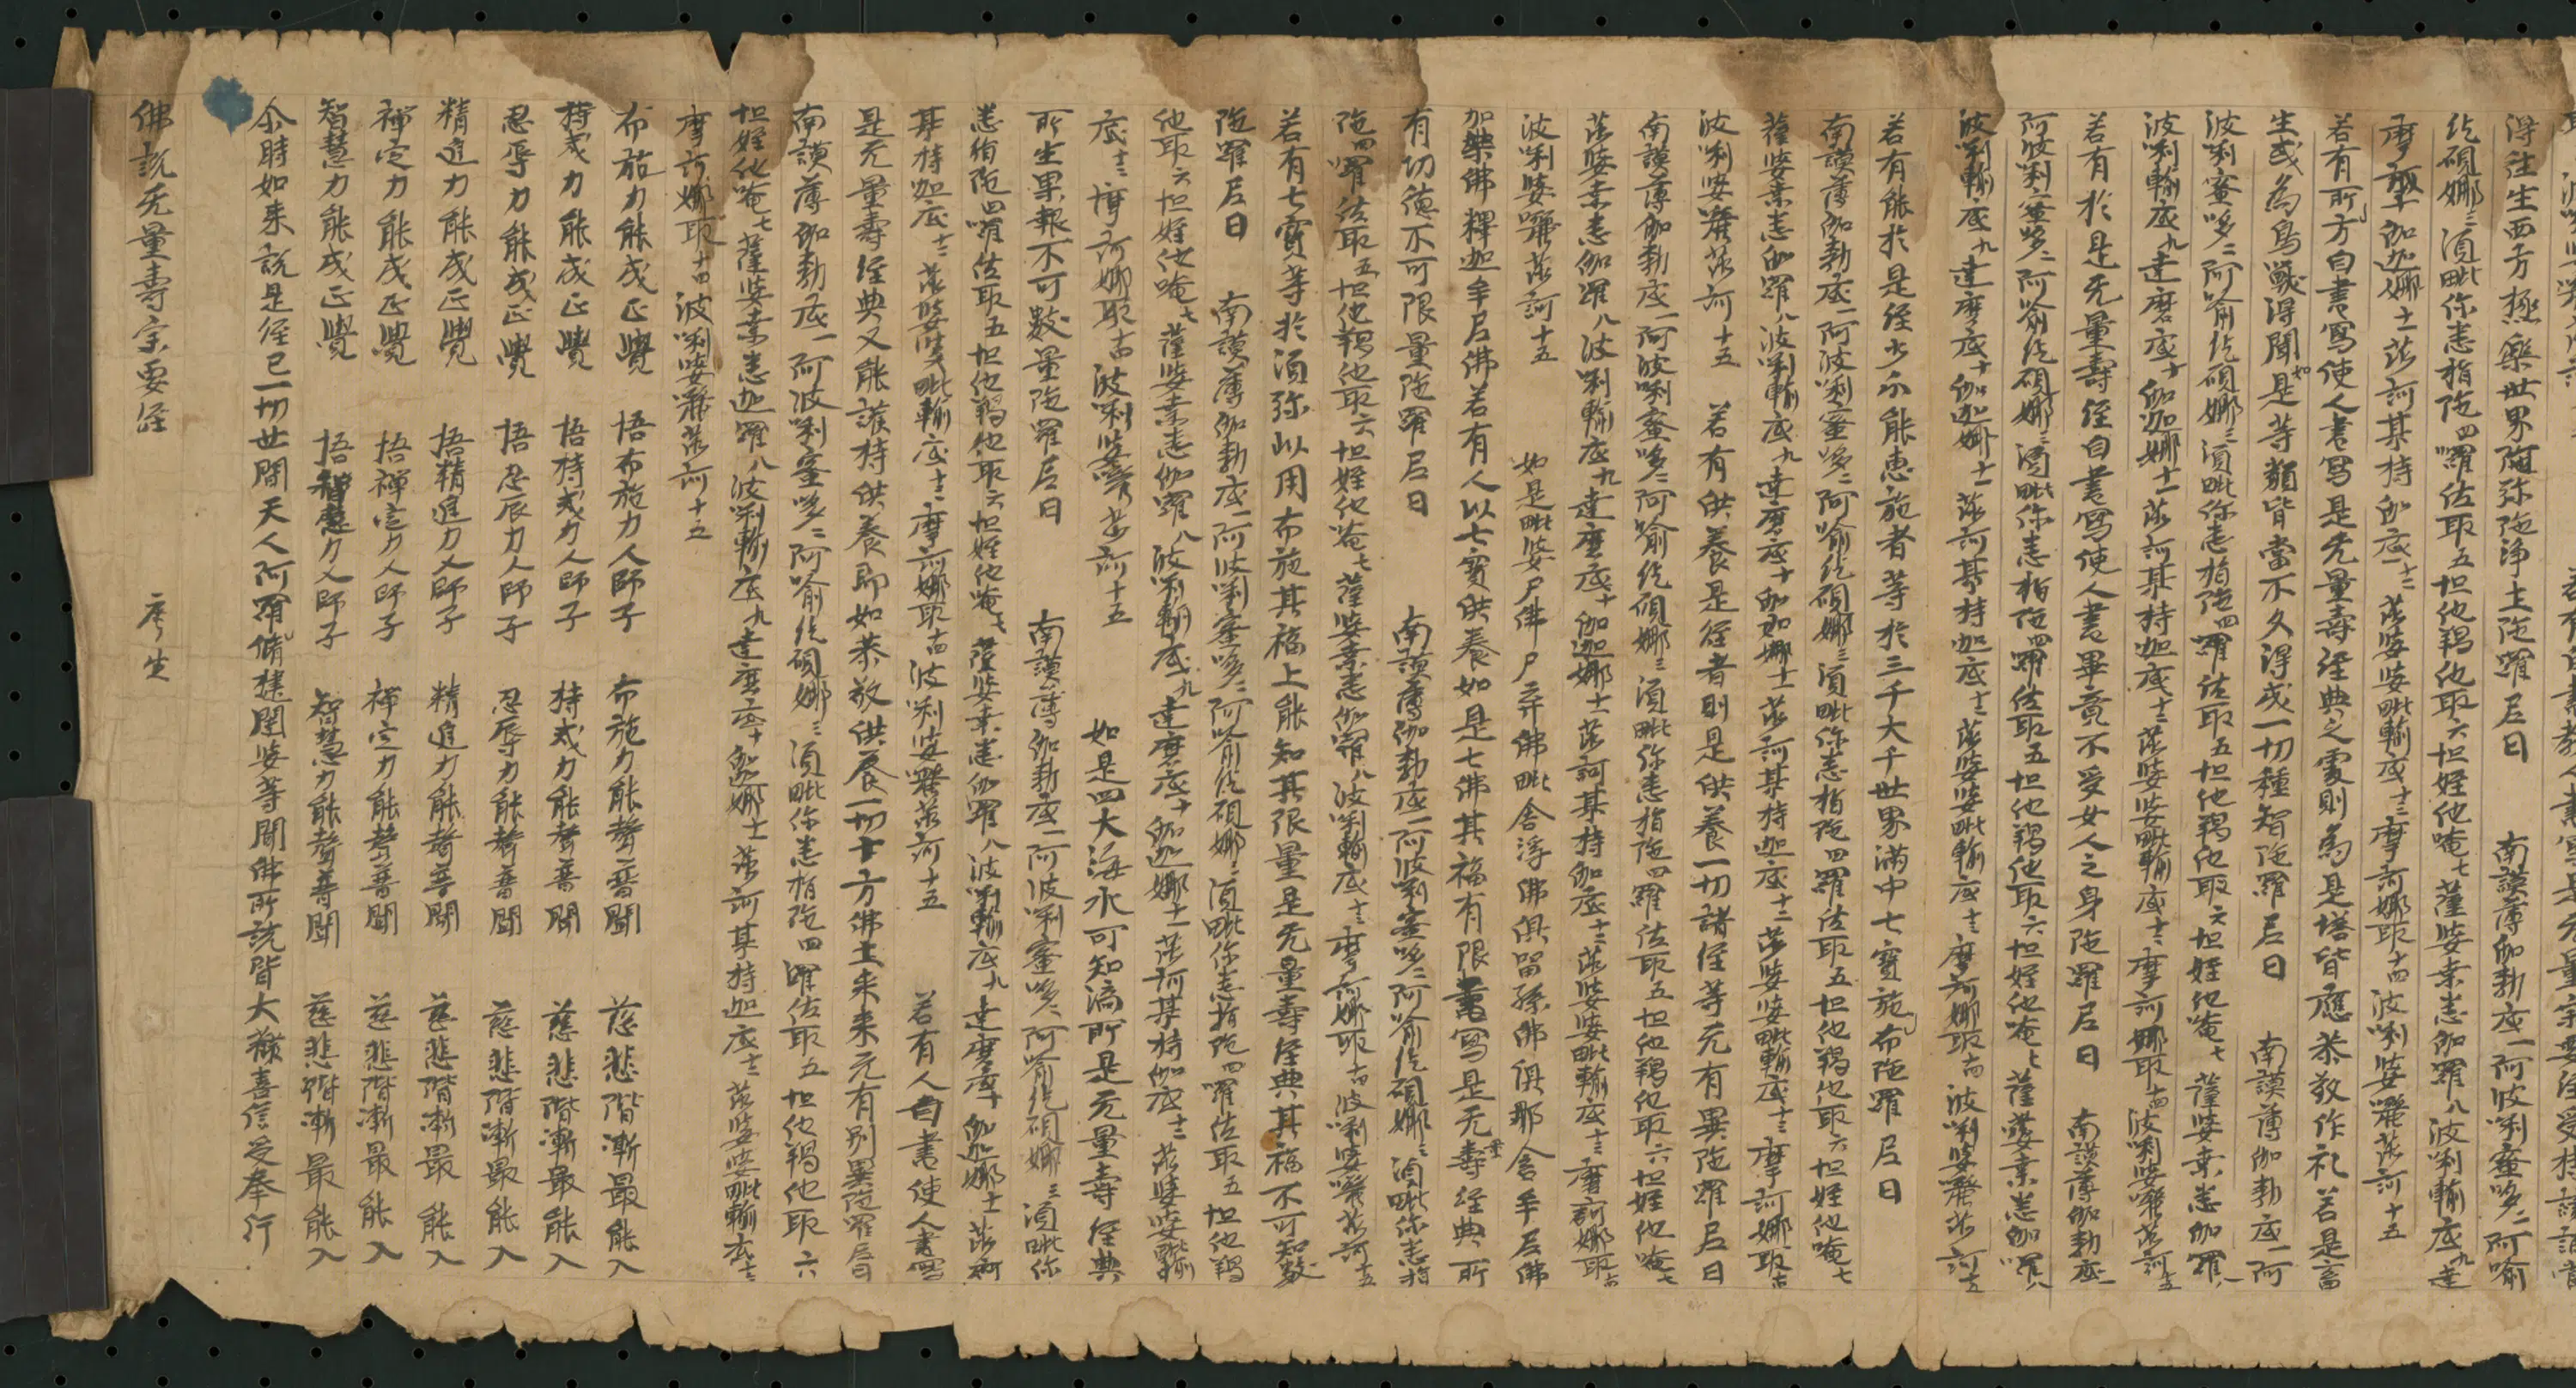 得往生西方極樂世界阿弥陁淨土陁羅尼曰　南謨薄伽勃底一阿波唎蜜哆二阿喻
紇硯娜三湏毗你悉指陁四囉佐耶五怛他羯他耶六怛姪他唵七薩婆桒悉伽羅八波唎輸底九達
摩底十伽迦娜十一莎訶某持伽底十二莎婆婆毗輸底十三摩訶娜耶十四波唎婆囇莎訶十五
若有所方自書寫使人書寫是无量壽經典之處則為是塔皆應恭敬作礼若是畜
生或為鳥獸得聞如是等類皆當不久得成一切種智陁羅尼曰　南謨薄伽勃底一阿
波唎蜜哆二阿喻紇硯娜三湏毗你悉指陁四囉佐耶五怛他羯他耶六怛姪他唵七薩婆桒悉伽羅八
波唎輸底九達磨底十伽迦娜十一莎訶某持迦底十二莎婆婆毗輸底十三摩訶娜耶十四波唎婆囇莎訶十五
若有於是无量壽經自書寫使人書畢竟不受女人之身陁羅尼曰　南謨薄伽勃底一
阿波唎蜜哆二阿喻紇硯娜三湏毗你悉指陁四囉佐耶五怛他羯他耶六怛姪他唵七薩婆桒悉伽囉八
波唎輸底九達摩底十伽迦娜十一莎訶某持迦底十二莎婆婆毗輸底十三摩訶娜耶十四波唎婆囇莎訶十五
若有能於是經少分能惠施者等於三千大千世界滿中七寶施布陁羅尼曰
南謨薄伽勃底一阿波唎蜜哆二阿喻紇硯娜三湏毗你悉指陁四羅佐耶五怛他羯他耶六怛姪他唵七
薩婆桒悉伽羅八波唎輸底九達磨底十伽迦娜十一莎訶某持迦底十二莎婆婆毗輸底十三摩訶娜耶十四
波唎婆囇莎訶十五　若有供養是經者則是供養一切諸經等无有異陁羅尼曰
南謨薄伽勃底一阿波唎蜜哆二阿喻紇硯娜三湏毗你悉指陁四羅佐耶五怛他羯他耶六怛姪他唵七
薩婆桒悉伽羅八波唎輸底九達磨底十伽迦娜十一莎訶某持伽底十二莎婆婆毗輸底十三摩訶娜耶十四
波唎婆囇莎訶十五　如是毗婆尸佛尸弃佛毗舍浮佛俱留孫佛俱那含牟尼佛
加葉佛釋迦牟尼佛若有人以七寶供養如是七佛其福有限書寫是无量壽經典所
有切德不可限量陁羅尼曰　南謨薄伽勃底一阿波唎蜜哆二阿喻紇硯娜三湏毗你悉指
陁四囉佐耶五怛他羯他耶六怛姪他唵七薩婆桒悉伽羅八波唎輸底十三摩訶娜耶十四波唎婆囇莎訶十五
若有七寶等於湏弥以用布施其福上能知其限量是无量壽經典其福不可知數
陁羅尼曰　南謨薄伽勃底一阿波唎蜜哆二阿喻紇硯娜三湏毗你悉指陁四囉佐耶五怛他羯
他耶六怛姪他唵七薩婆桒悉伽羅八波唎輸底九達磨底十伽迦娜十一莎訶某持伽底十二莎婆婆毗輸
底十三摩訶娜耶十四波唎婆囇莎訶十五　如是四大海水可知滴所是无量壽經典
所生果報不可數量陁羅尼曰　南謨薄伽勃底一阿波唎蜜哆二阿喻紇硯娜三湏毗你
悉指陁四囉佐耶五怛他羯他耶六怛姪他唵七薩婆桒悉伽羅八波唎輸底九達磨底十伽迦娜十一莎訶
某持迦底十二莎婆婆毗輸底十三摩訶娜耶十四波唎婆囇莎訶十五　若有人自書使人書寫
是无量壽經典又能護持供養即如恭敬供養一切十方佛土来来无有别異陁羅尼曰
南謨薄伽勃底一阿波唎蜜哆二阿喻紇硯娜三湏毗你悉指陁四囉佐耶五怛他羯他耶六
怛姪他唵七薩婆桒悉迦羅八波唎輸底九達磨底十伽迦娜十一莎訶某持迦底十二莎婆婆毗輸底十三
摩訶娜耶十四波唎婆囇莎訶十五
布施力能成正覺　悟布施力人師子　布施力能聲普聞　慈悲階漸最能入
持戒力能成正覺　悟持戒力人師子　持戒力能聲普聞　慈悲階漸最能入
忍辱力能成正覺　悟忍辱力人師子　忍辱力能聲普聞　慈悲階漸最能入
精進力能成正覺　悟精進力人師子　精進力能聲普聞　慈悲階漸最能入
禪定力能成正覺　悟禪定力人師子　禪定力能聲普聞　慈悲階漸最能入
智慧力能成正覺　悟智慧力人師子　智慧力能聲普聞　慈悲階漸最能入
尒時如来說是經已一切世間天人阿脩羅揵闥婆等聞佛所說皆大歡喜信受奉行
佛說无量壽宗要經　　廖生